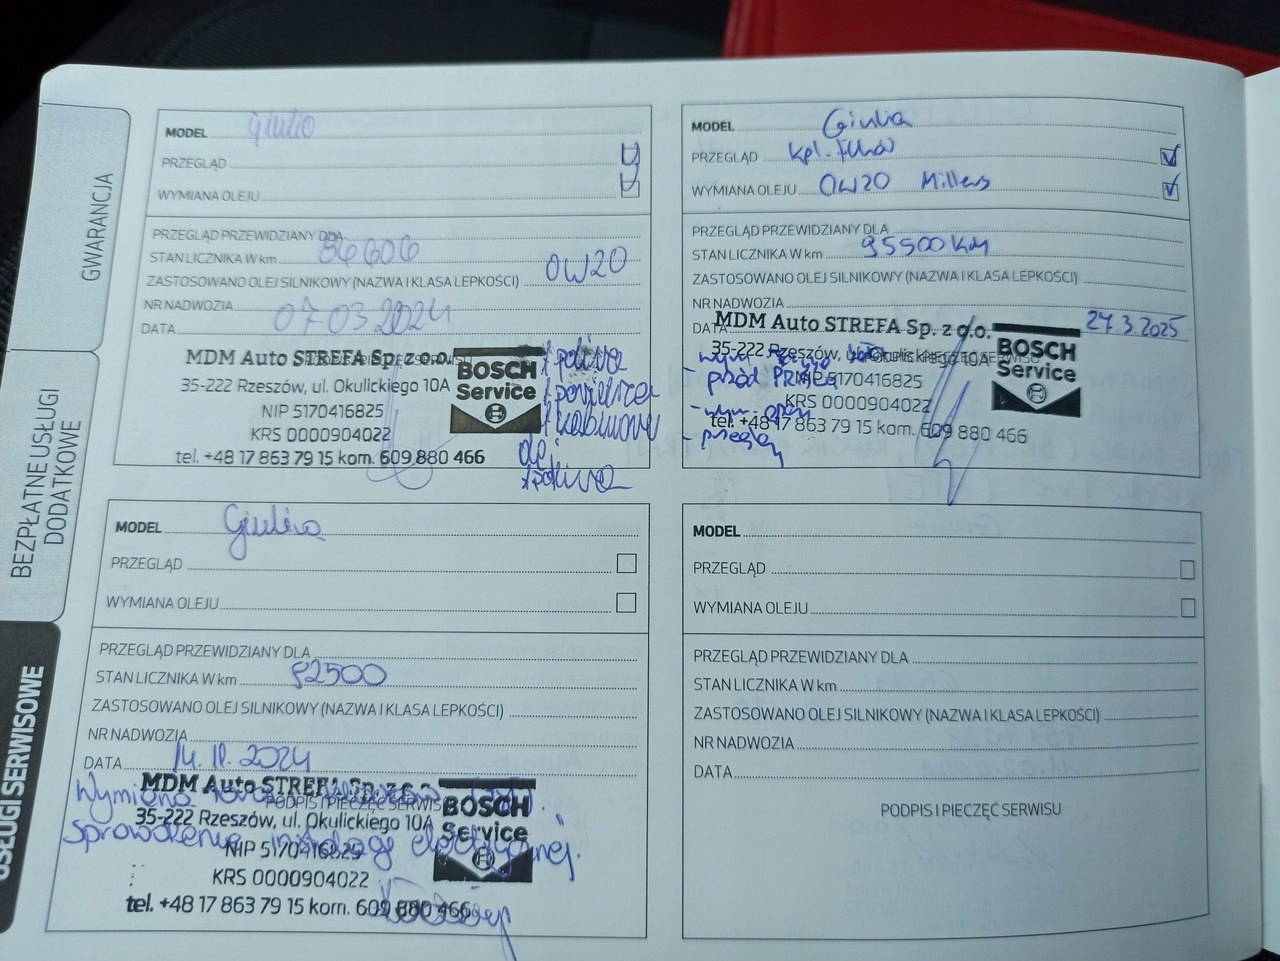 GWARANCJA
BEZPŁATNE USŁUGI
DODATKOWE
USŁUGI SERWISOWE
MODEL Giulia
PRZEGLĄD
WYMIANA OLEJU
PRZEGLĄD PRZEWIDZIANY DLA
STAN LICZNIKA W km 86606
ZASTOSOWANO OLEJ SILNIKOWY (NAZWA I KLASA LEPKOŚCI) 0W20
NR NADWOZIA
DATA 07.03.2024
MDM Auto STREFA Sp. z o.o.
35-222 Rzeszów, ul. Okulickiego 10A
NIP 5170416825
KRS 0000904022
tel. +48 17 863 79 15 kom. 609 880 466
BOSCH
Service
f paliwa
f powietrza
f kabinowy
olej
MODEL Giulia
PRZEGLĄD kpl. filtrów
WYMIANA OLEJU 0W20 Millers
PRZEGLĄD PRZEWIDZIANY DLA
STAN LICZNIKA W km 95500 KM
ZASTOSOWANO OLEJ SILNIKOWY (NAZWA I KLASA LEPKOŚCI)
NR NADWOZIA
DATA 27.3.2025
MDM Auto STREFA Sp. z o.o.
35-222 Rzeszów, ul. Okulickiego 10A
NIP 5170416825
KRS 0000904022
tel. +48 17 863 79 15 kom. 609 880 466
BOSCH
Service
- wym
przód
- wym. opon
- przegląd
MODEL Giulia
PRZEGLĄD
WYMIANA OLEJU
PRZEGLĄD PRZEWIDZIANY DLA
STAN LICZNIKA W km 92500
ZASTOSOWANO OLEJ SILNIKOWY (NAZWA I KLASA LEPKOŚCI)
NR NADWOZIA
DATA 14.11.2024
PODPIS I PIECZĘĆ SERWISU
MDM Auto STREFA Sp. z o.o.
35-222 Rzeszów, ul. Okulickiego 10A
NIP 5170416825
KRS 0000904022
tel. +48 17 863 79 15 kom. 609 880 466
BOSCH
Service
Wymiana
sprawdzenie instalacji elektrycznej.
MODEL
PRZEGLĄD
WYMIANA OLEJU
PRZEGLĄD PRZEWIDZIANY DLA
STAN LICZNIKA W km
ZASTOSOWANO OLEJ SILNIKOWY (NAZWA I KLASA LEPKOŚCI)
NR NADWOZIA
DATA
PODPIS I PIECZĘĆ SERWISU